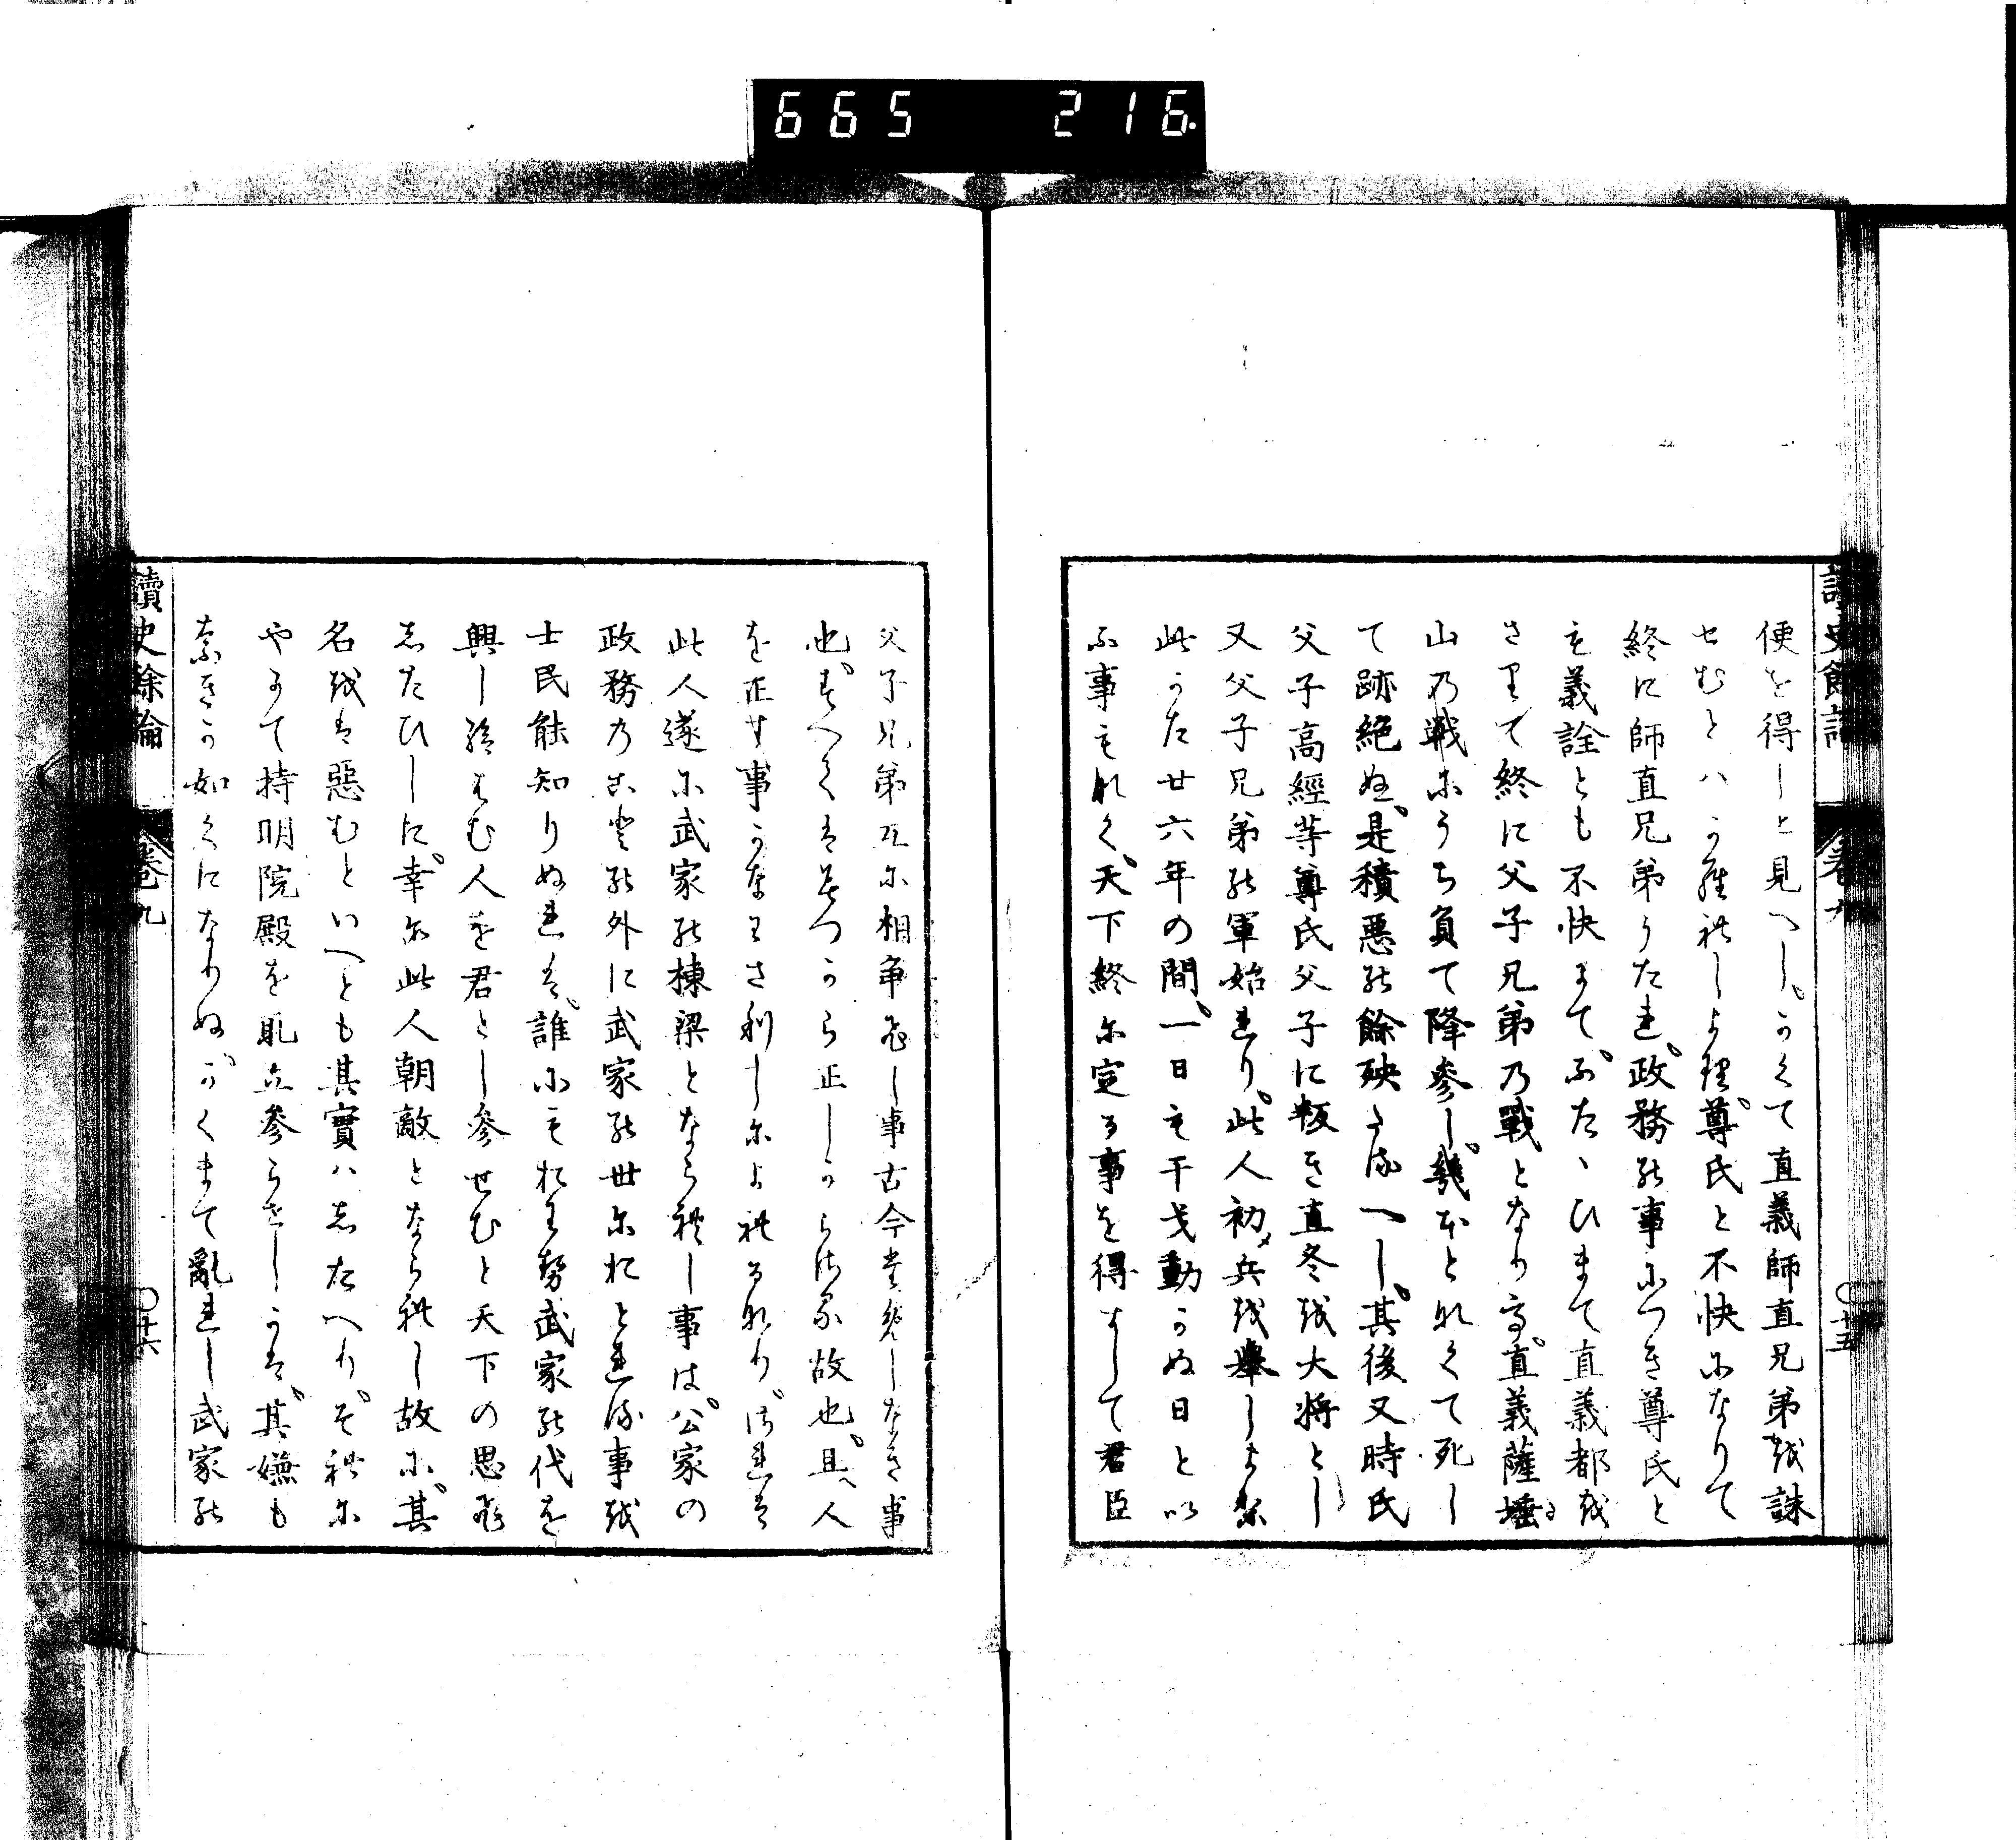 665 216
便を得しと見へし。かくて直義師直兄弟を誅
せむとはかられしより。尊氏と不快になりて
終に師直兄弟うたれ。政務の事につき尊氏と
も義詮とも不快にて。ふたゝひまて直義都を
さりて終に父子兄弟の戰となり
山の戰にうち負て降參し。幾ほとなくて死し
て跡絶ぬ。是積惡の餘殃たるへし。其後又時氏
父子高經等尊氏父子に叛き直冬を大將とし
又父子兄弟の軍始れり。此人初メ兵を擧しより
此かた廿六年の間。一日も干戈動かぬ日とい
ふ事もなく。天下終に定る事を得すして君臣
父子兄弟互に相爭ひし事古今ためしなき事
也。すへてみつから正しからさる故也。且人
を正す事かなはさりしによれるなり。されは
此人遂に武家の棟梁となられし事は。公家の
政務の
外に武家の世におとれる事を
士民能知りぬれは。誰にもおはせ武家の代を
興し給はむ人を君とし參せむと天下の思ひ
したひしに。幸に此人朝敵となられし故に。其
名をは惡むといへとも其實ハしたへり。それに
やかて持明院殿を取立參らせしかは。其嫌も
なきか如くになりぬ。かくまて亂れし武家の
讀史餘論
卷九
○十五
讀史餘論
卷九
○十六